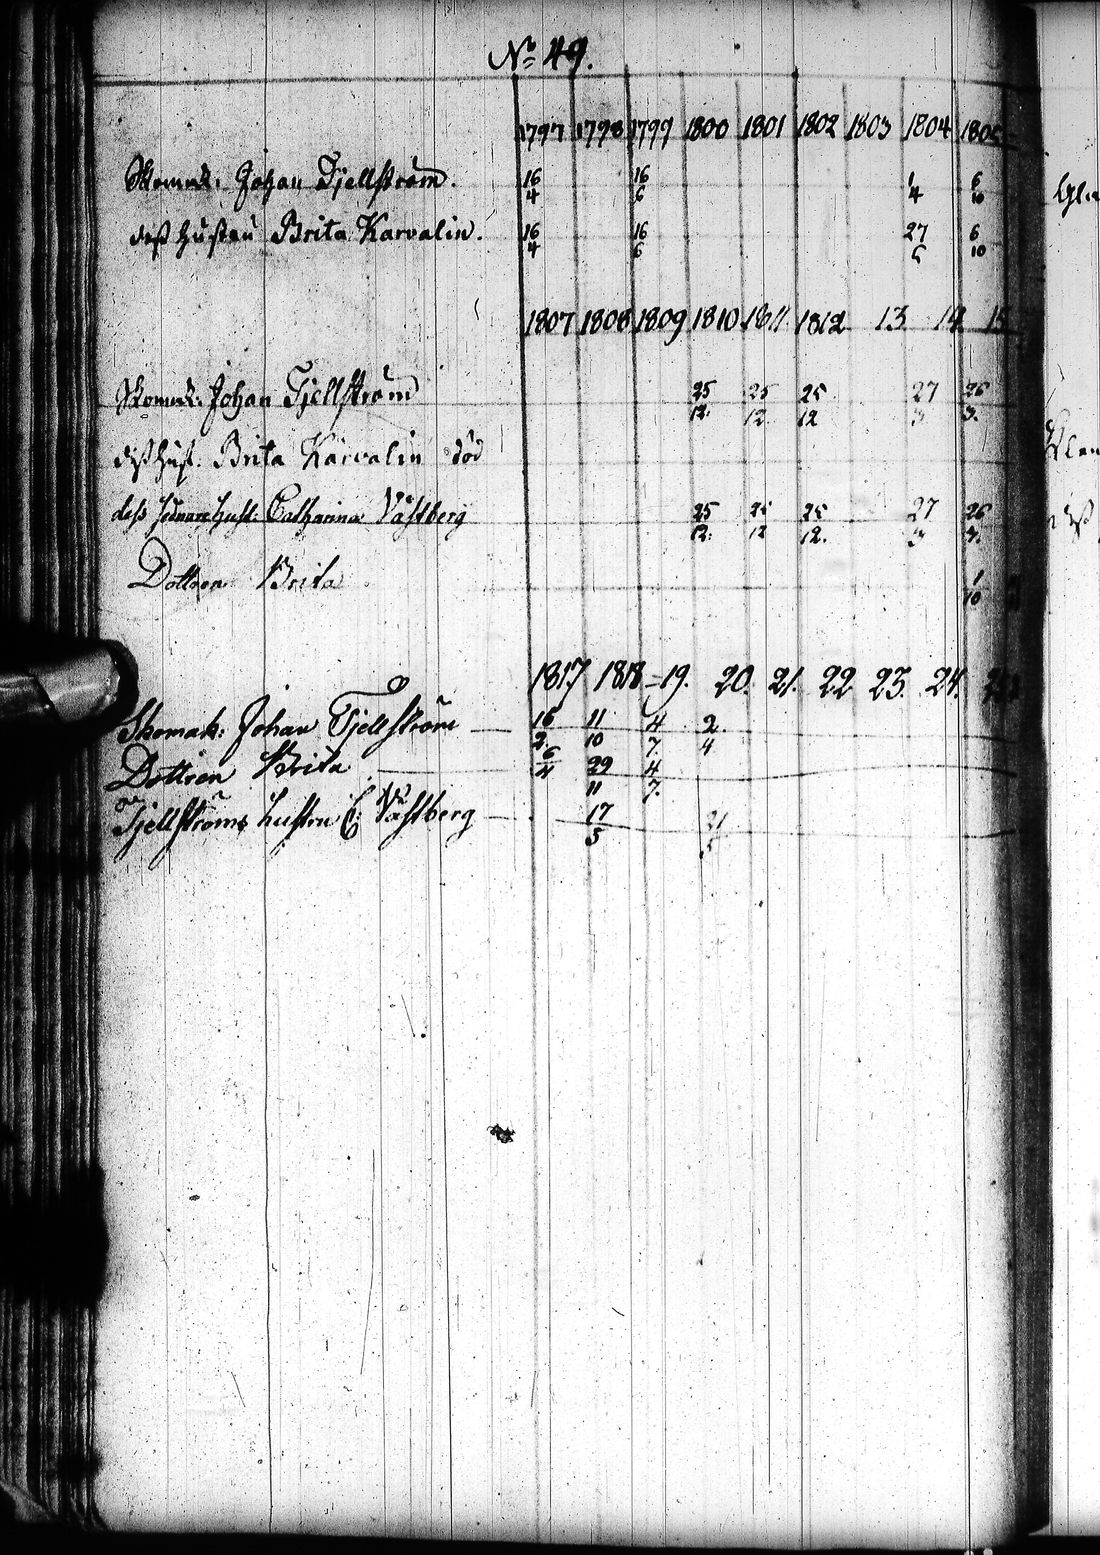 No 49.
1797 1798 1799 1800 1801 1802 1803 1804 1805
Skomak: Johan Tjellström. 16/4 16/6 1/4 6/10
dess Hustru Brita Karvalin. 16/4 16/6 27/5 6/10
1807 1808 1809 1810 1811 1812 13 14 15
Skomak: Johan Tjellström 25/12. 25/12 25/12 27/3 26/3.
dess Hust. Brita Karvalin död
dess senare Hust: Catharina Västberg 25/12. 25/12 25/12. 27/3 26/3.
Dottren Brita 1/10
1817 1818 19. 20. 21. 22 23. 24.
Skomak: Johan Tjellström 16/2 11/10 4/7. 2/4
Dottren Brita 6/4 29/11 4/7.
Tjellströms hustru C: Västberg 17/5 21/5